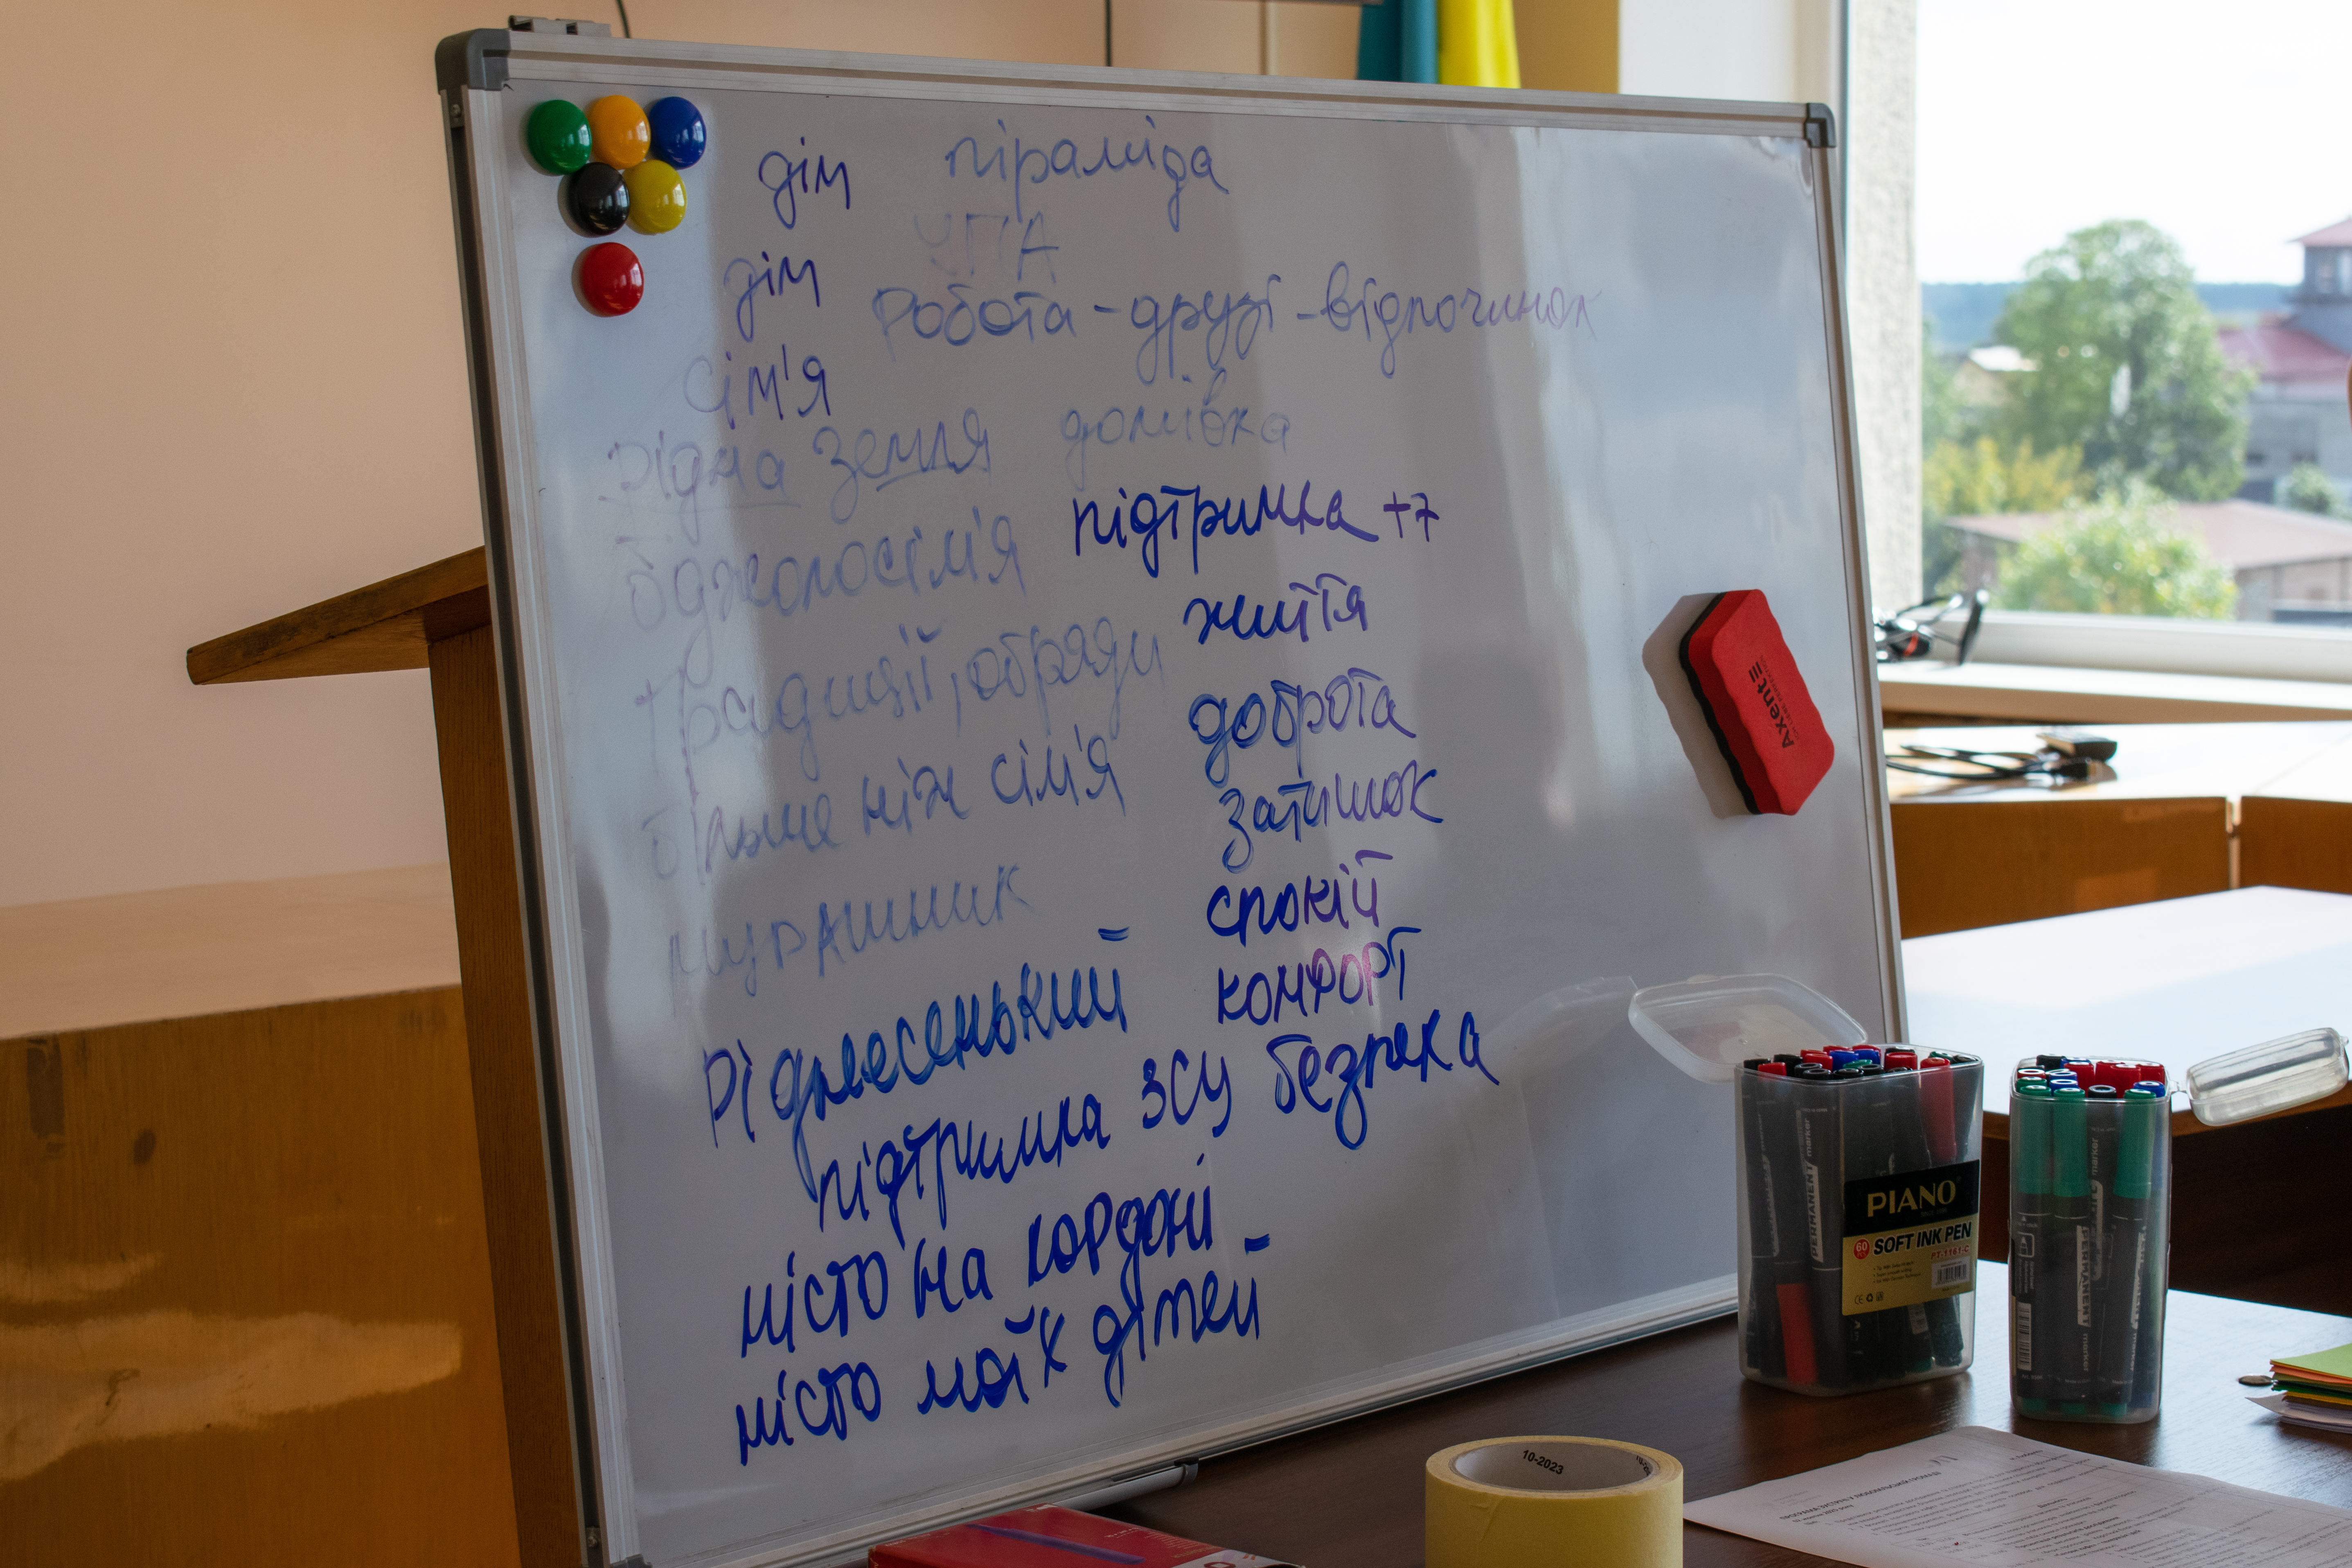 дім піраміда
УПА
дім
Робота - друзі - відпочинок
сім'я
рідна земля домівка
бджолосім'я підтримка +7
життя
традиції, обряди
доброта
більше ніж сім'я
затишок
мурашник
спокій
Ріднесенький
комфорт
підтримка ЗСУ безпека
місто на кордоні
місто моїх дітей
Axent
PIANO
60 SOFT INK PEN
PT-1161-C
PERMANENT marker
PERMANENT marker
10-2023